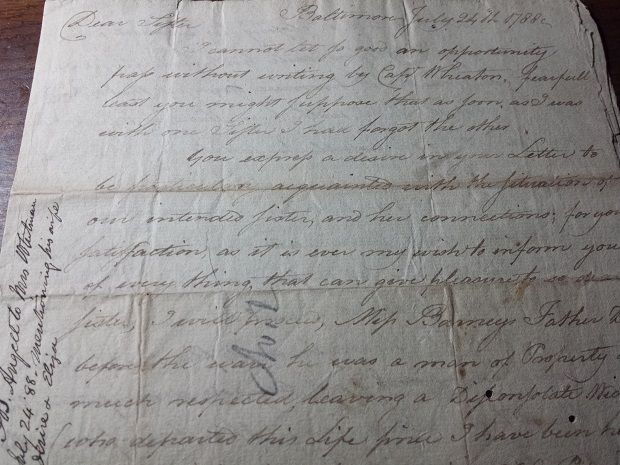 Dear Sister Baltimore July 24th 1788
I cannot let so good an opportunity
pass without writing by Capt Wheaton, fearfull
least you might suppose that as soon as I was
with one Sister I had forgot the other
You express a desire in your Letter to
be particulary acquainted with the situation of
our intended sister, and her connections; for your
satisfaction, as it is ever my wish to inform you
of every thing, that can give pleasure to so dear
sister, I will Miss Barneys Father
before the warr he was a man of Property
much respected, leaving a Disconsolate
who departed this Life since I have been
No 2
Angell to Mrs Whitman
July 24 88. Mentioning his wife
& Eliza